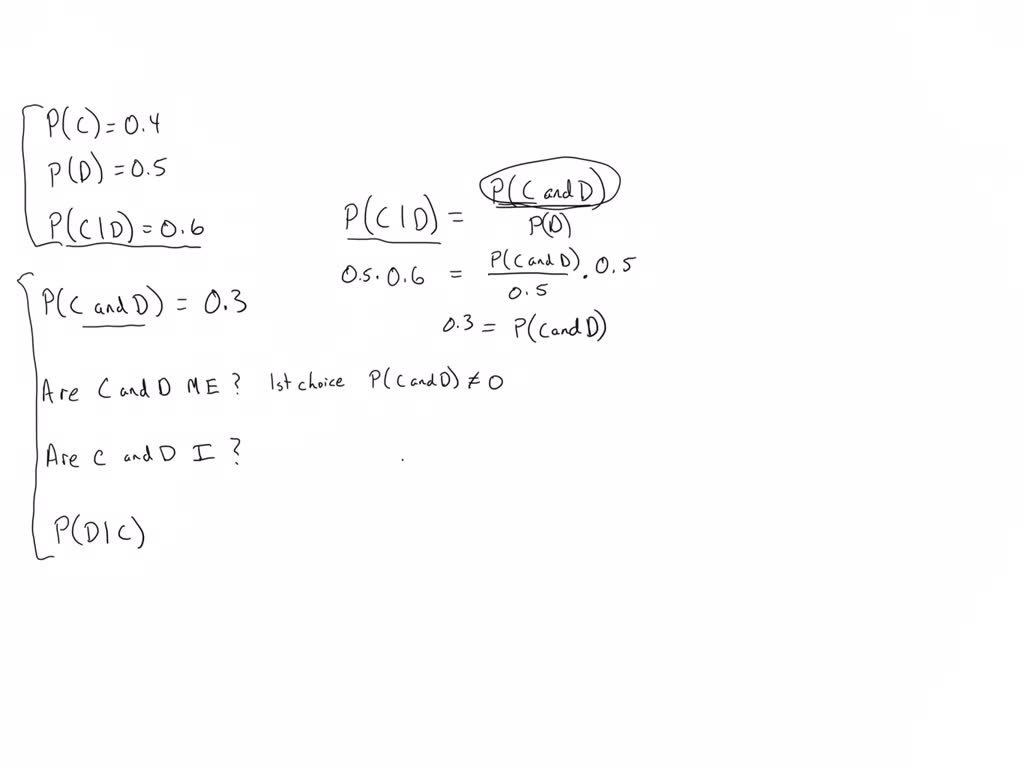 P(C) = 0.4
P(D) = 0.5
P(C|D) = 0.6
P(C|D) = P(C and D) / P(D)
0.5 · 0.6 = P(C and D) / 0.5 · 0.5
0.3 = P(C and D)
P(C and D) = 0.3
Are C and D ME? 1st choice P(C and D) ≠ 0
Are C and D I?
P(D|C)